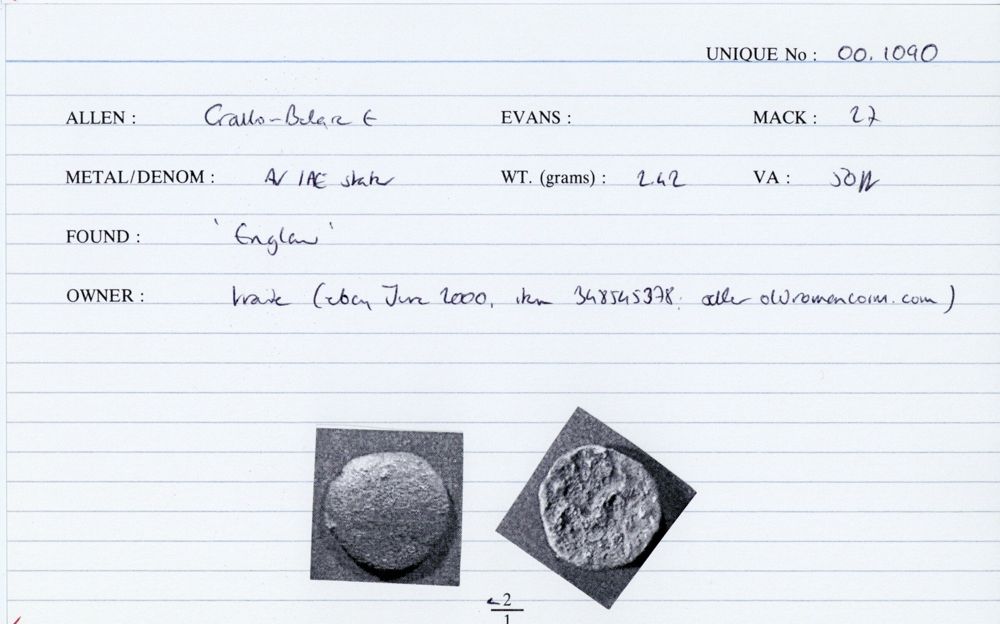 UNIQUE No : 00.1090
ALLEN : Gallo-Belgic E EVANS : MACK : 27
METAL/DENOM : AV/AE stater WT. (grams) : 2.42 VA :
FOUND : 'England'
OWNER : trade (ebay June 2000, item 348545378; seller oldromancoins.com)
2
1